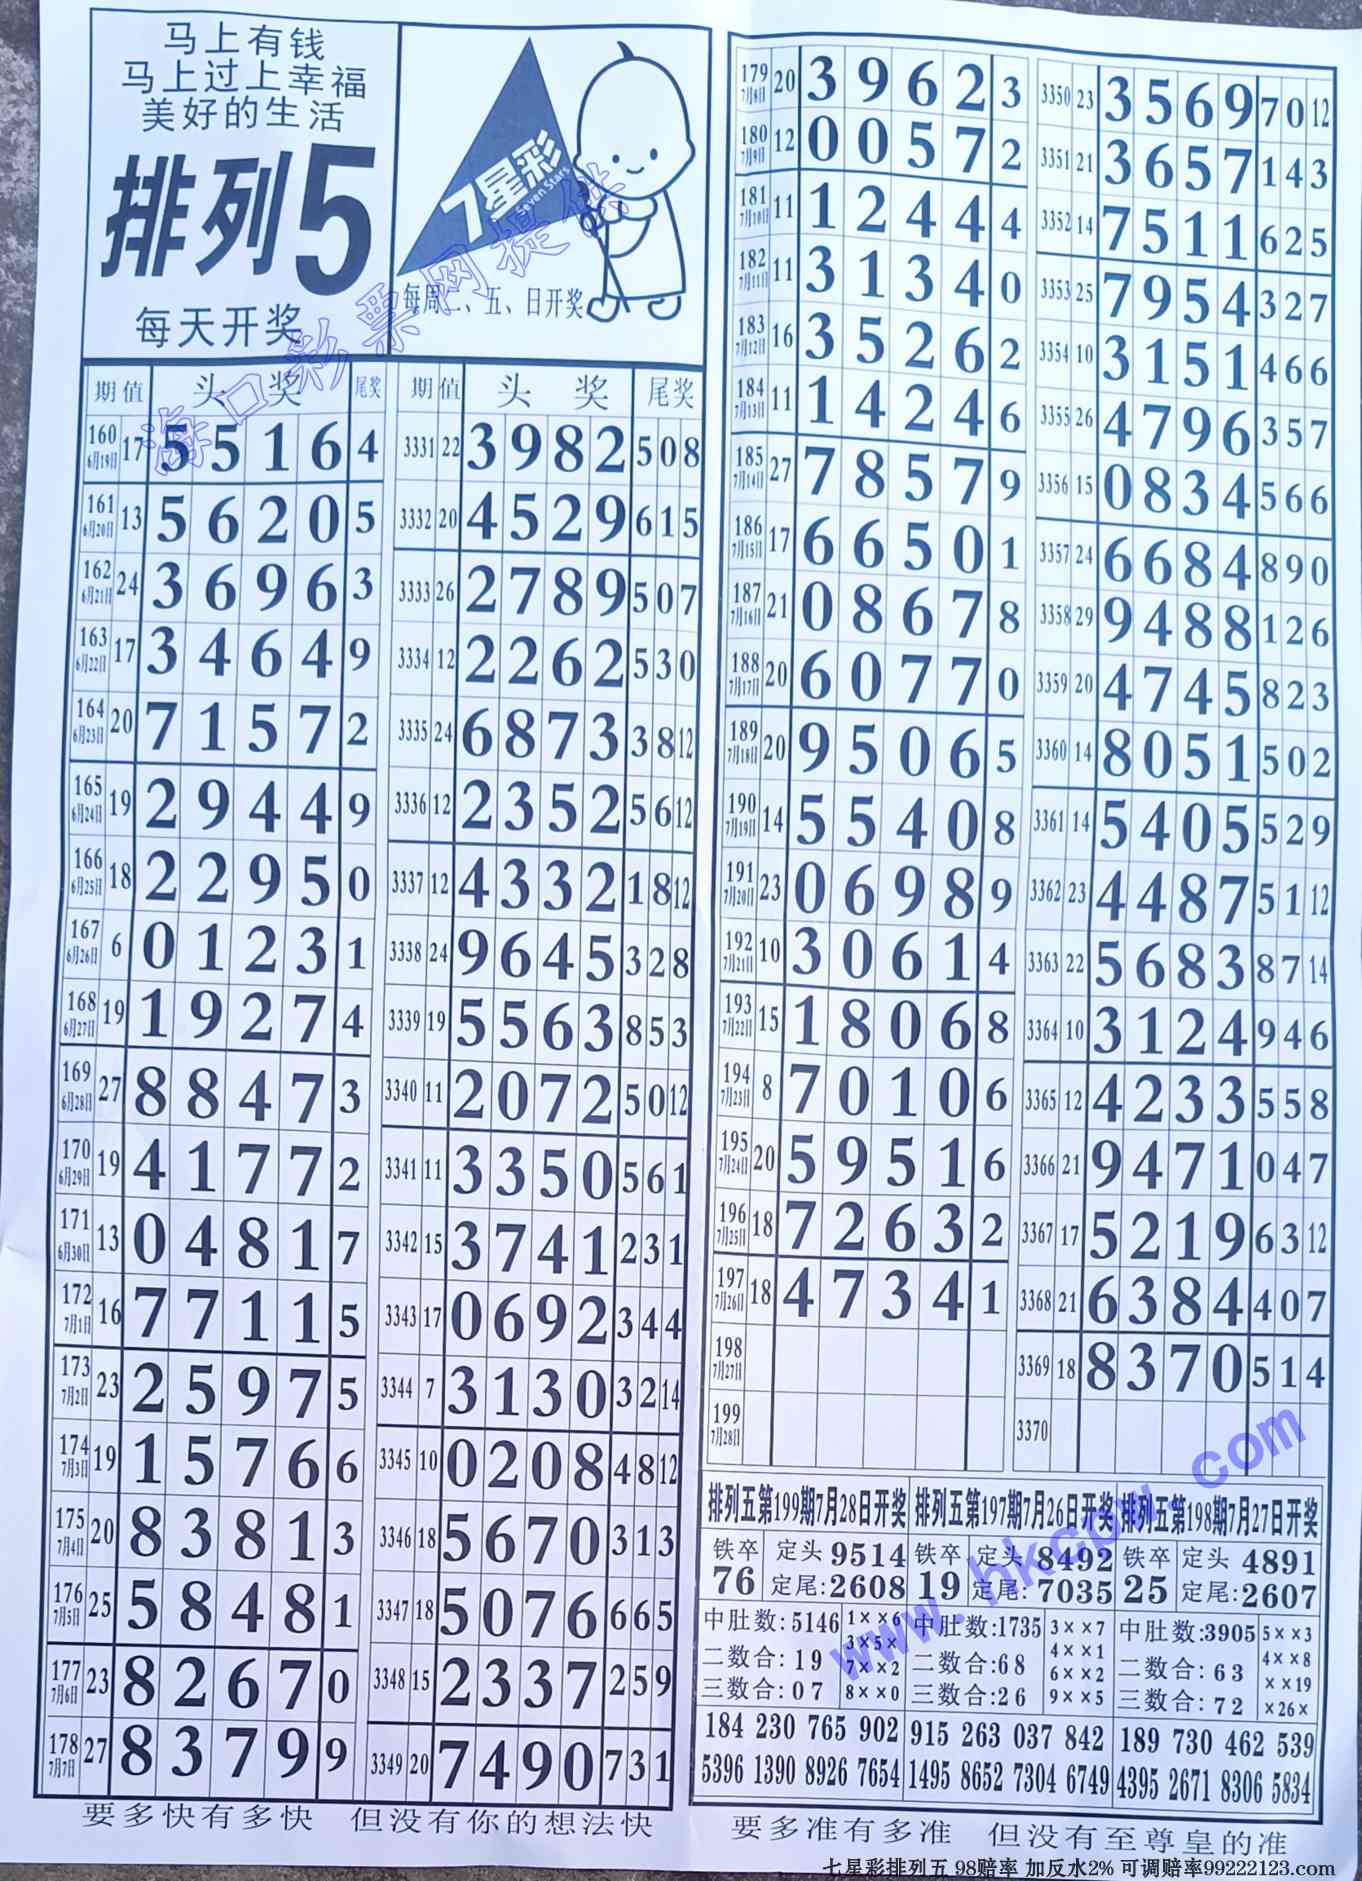 马上有钱
马上过上幸福
美好的生活
排列5
每天开奖
7星彩
Seven Stars
每周二、五、日开奖
海口彩票网提供
期 值 头奖 尾奖 期 值 头奖 尾奖
160 6月19日 17 5 5 1 6 4 3331 22 3 9 8 2 5 0 8
161 6月20日 13 5 6 2 0 5 3332 20 4 5 2 9 6 1 5
162 6月21日 24 3 6 9 6 3 3333 26 2 7 8 9 5 0 7
163 6月22日 17 3 4 6 4 9 3334 12 2 2 6 2 5 3 0
164 6月23日 20 7 1 5 7 2 3335 24 6 8 7 3 3 8 12
165 6月24日 19 2 9 4 4 9 3336 12 2 3 5 2 5 6 12
166 6月25日 18 2 2 9 5 0 3337 12 4 3 3 2 1 8 12
167 6月26日 6 0 1 2 3 1 3338 24 9 6 4 5 3 2 8
168 6月27日 19 1 9 2 7 4 3339 19 5 5 6 3 8 5 3
169 6月28日 27 8 8 4 7 3 3340 11 2 0 7 2 5 0 12
170 6月29日 19 4 1 7 7 2 3341 11 3 3 5 0 5 6 1
171 6月30日 13 0 4 8 1 7 3342 15 3 7 4 1 2 3 1
172 7月1日 16 7 7 1 1 5 3343 17 0 6 9 2 3 4 4
173 7月2日 23 2 5 9 7 5 3344 7 3 1 3 0 3 2 14
174 7月3日 19 1 5 7 6 6 3345 10 0 2 0 8 4 8 12
175 7月4日 20 8 3 8 1 3 3346 18 5 6 7 0 3 1 3
176 7月5日 25 5 8 4 8 1 3347 18 5 0 7 6 6 6 5
177 7月6日 23 8 2 6 7 0 3348 15 2 3 3 7 2 5 9
178 7月7日 27 8 3 7 9 9 3349 20 7 4 9 0 7 3 1
要多快有多快 但没有你的想法快
179 7月8日 20 3 9 6 2 3 3350 23 3 5 6 9 7 0 12
180 7月9日 12 0 0 5 7 2 3351 21 3 6 5 7 1 4 3
181 7月10日 11 1 2 4 4 4 3352 14 7 5 1 1 6 2 5
182 7月11日 11 3 1 3 4 0 3353 25 7 9 5 4 3 2 7
183 7月12日 16 3 5 2 6 2 3354 10 3 1 5 1 4 6 6
184 7月13日 11 1 4 2 4 6 3355 26 4 7 9 6 3 5 7
185 7月14日 27 7 8 5 7 9 3356 15 0 8 3 4 5 6 6
186 7月15日 17 6 6 5 0 1 3357 24 6 6 8 4 8 9 0
187 7月16日 21 0 8 6 7 8 3358 29 9 4 8 8 1 2 6
188 7月17日 20 6 0 7 7 0 3359 20 4 7 4 5 8 2 3
189 7月18日 20 9 5 0 6 5 3360 14 8 0 5 1 5 0 2
190 7月19日 14 5 5 4 0 8 3361 14 5 4 0 5 5 2 9
191 7月20日 23 0 6 9 8 9 3362 23 4 4 8 7 5 1 12
192 7月21日 10 3 0 6 1 4 3363 22 5 6 8 3 8 7 14
193 7月22日 15 1 8 0 6 8 3364 10 3 1 2 4 9 4 6
194 7月23日 8 7 0 1 0 6 3365 12 4 2 3 3 5 5 8
195 7月24日 20 5 9 5 1 6 3366 21 9 4 7 1 0 4 7
196 7月25日 18 7 2 6 3 2 3367 17 5 2 1 9 6 3 12
197 7月26日 18 4 7 3 4 1 3368 21 6 3 8 4 4 0 7
198 7月27日 3369 18 8 3 7 0 5 1 4
199 7月28日 3370
排列五第199期7月28日开奖 排列五第197期7月26日开奖 排列五第198期7月27日开奖
铁卒 定头 9514 铁卒 定头 8492 铁卒 定头 4891
76 定尾:2608 19 定尾:7035 25 定尾:2607
中肚数:5146 1××6 中肚数:1735 3××7 中肚数:3905 5××3
二数合:19 3×5× 二数合:68 4××1 二数合:63 4××8
7××2 6××2 ××19
三数合:07 8××0 三数合:26 9××5 三数合:72 ×26×
184 230 765 902 915 263 037 842 189 730 462 539
5396 1390 8926 7654 1495 8652 7304 6749 4395 2671 8306 5834
要多准有多准 但没有至尊皇的准
www.hkcpw.com
七星彩排列五 98赔率 加反水2% 可调赔率99222123.com